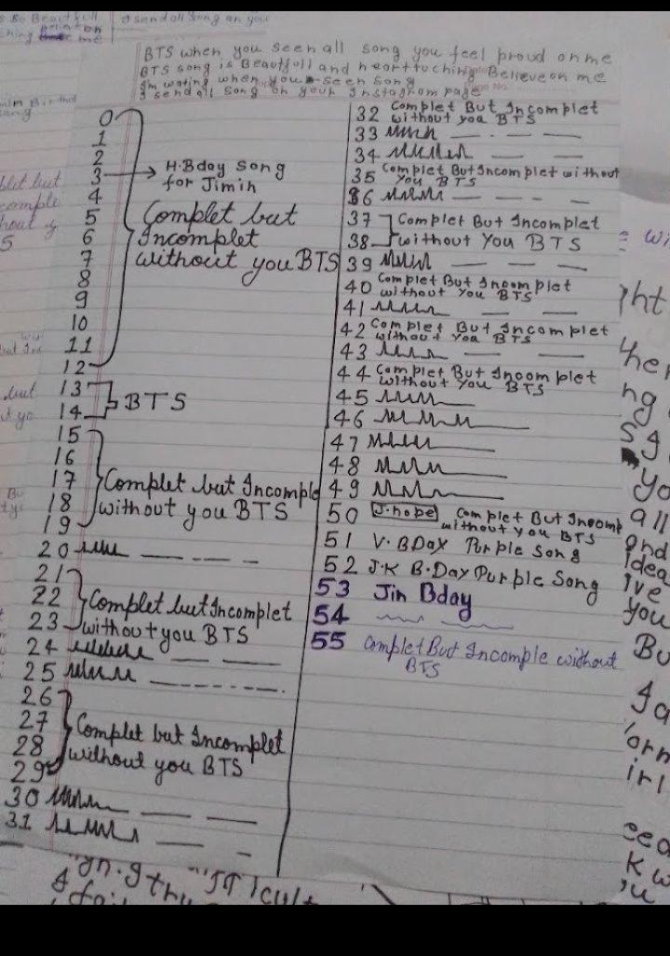 BTS when you seen all song you feel proud on me
BTS song is Beautfull and hearttuching Believe on me
I'm wating when you seen song
I send all song on your Instagram page
0
1
2
3 → H.Bday Song
for Jimin
4
5 Complet but
6 Incomplet
7 without you BTS
8
9
10
11
12
13 BTS
14
15
16
17 Complet but Incomple
18 without you BTS
19
20
21
22 Complet but Incomplet
23 without you BTS
24
25
26
27 Complet but Incomplet
28 without you BTS
29
30
31
32 Complet But Incomplet
without you BTS
33
34
35 Complet But Incomplet without
you BTS
36
37 Complet But Incomplet
38 without You BTS
39
40 Complet But Incomplet
without You BTS
41
42 Complet But Incomplet
without You BTS
43
44 Complet But Incomplet
without You BTS
45
46
47
48
49
50 J-hope Complet But Incomp
without you BTS
51 V. BDay Purple Song
52 J.K B.Day Purple Song
53 Jin Bday
54
55 Complet But Incomple without
BTS